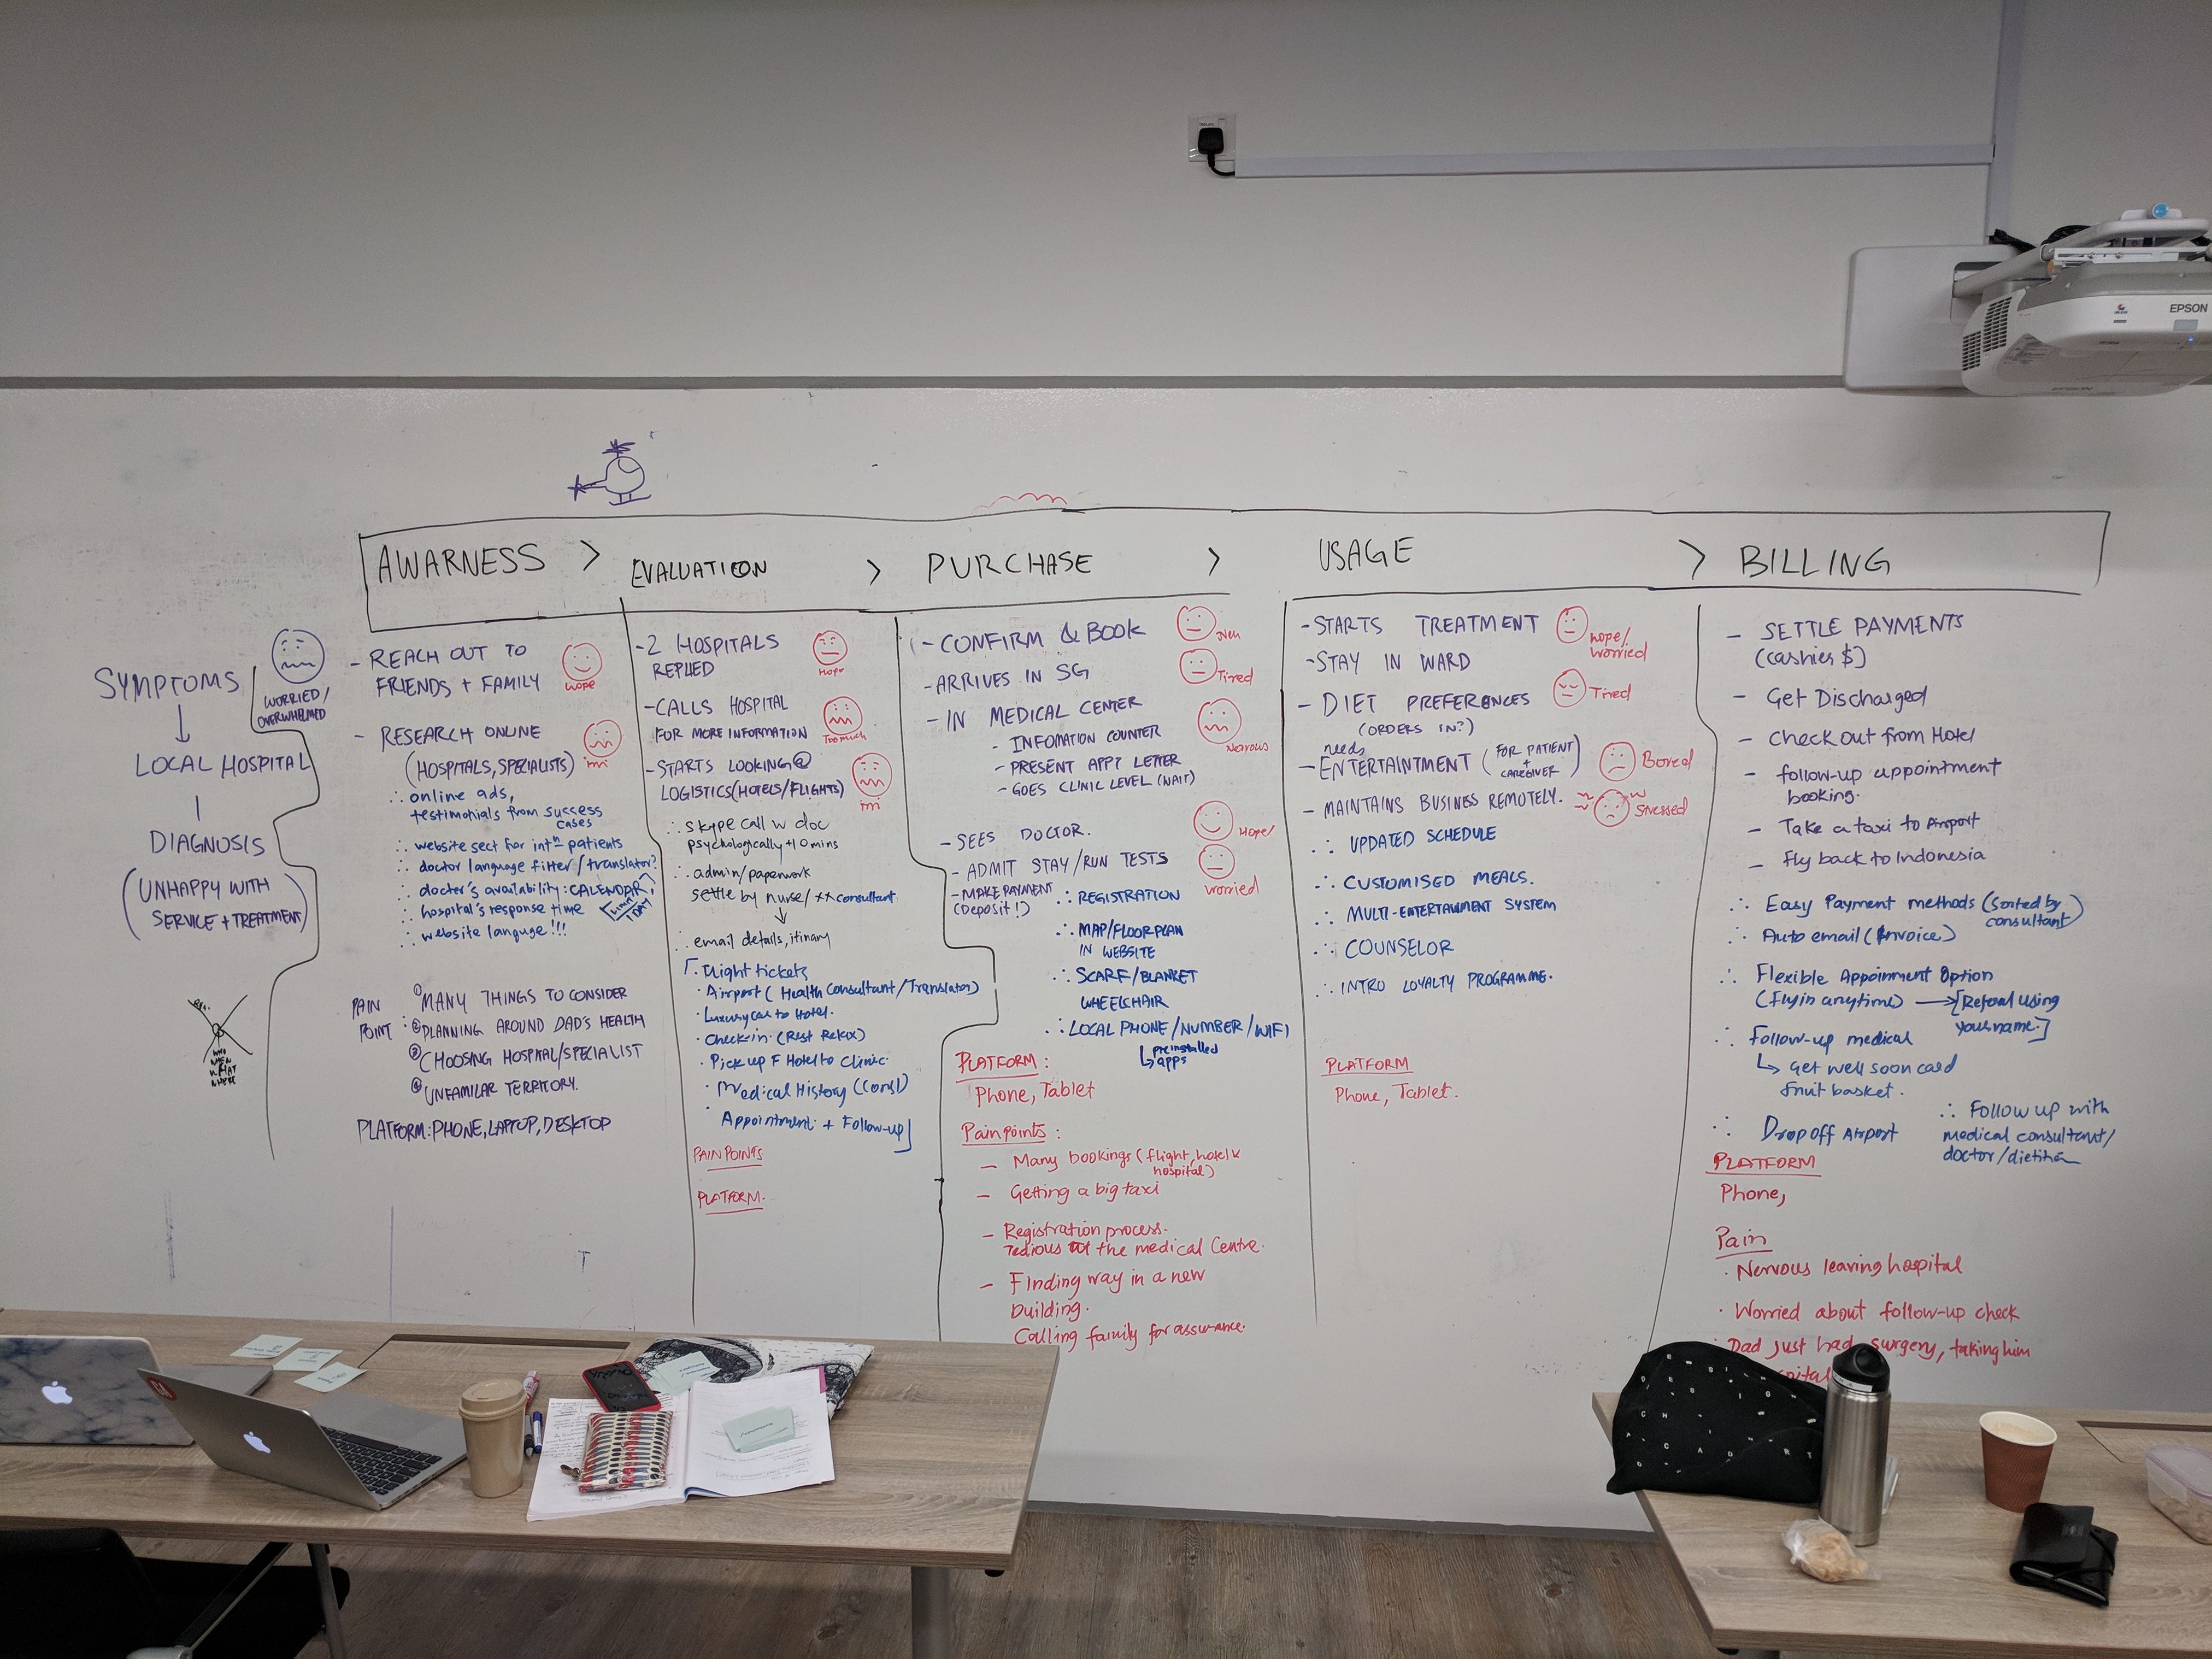 EPSON
AWARNESS >
EVALUATION >
PURCHASE >
USAGE >
BILLING
SYMPTOMS
WORRIED/
OVERWHELMED
LOCAL HOSPITAL
DIAGNOSIS
(UNHAPPY WITH
SERVICE + TREATMENT)
WHO
WHEN
WHAT
WHERE
- REACH OUT TO
FRIENDS + FAMILY
Hope
- RESEARCH ONLINE
(HOSPITALS, SPECIALISTS)
∴ online ads,
testimonials from success
cases
∴ website sect for intn patients
∴ doctor language filter/translator?
∴ docter's availability: CALENDAR!
∴ hospital's response time
1 DAY
∴ website languge!!!
PAIN
POINT:
① MANY THINGS TO CONSIDER
② PLANNING AROUND DAD'S HEALTH
③ CHOOSING HOSPITAL/SPECIALIST
④ UNFAMILAR TERRITORY.
PLATFORM: PHONE, LAPTOP, DESKTOP
- 2 HOSPITALS
REPLIED
Hope
- CALLS HOSPITAL
FOR MORE INFORMATION
Too much
- STARTS LOOKING @
LOGISTICS (HOTELS/FLIGHTS)
∴ skype call w doc
psychologically +10 mins
∴ admin/paperwork
settle by nurse/ ** consultant
∴ email details, itinary
Flight tickets
· Airport (Health Consultant/Translator)
· Luxury car to Hotel.
· Check-in (Rest Relax)
· Pick up F Hotel to Clinic.
· Medical History (Cons)
· Appointment + Follow-up]
PAIN POINTS
PLATFORM.
- CONFIRM & BOOK
- ARRIVES IN SG
Tired
- IN MEDICAL CENTER
- INFOMATION COUNTER
Nervous
- PRESENT APPT LETTER
- GOES CLINIC LEVEL (WAIT)
- SEES DOCTOR.
Hope/
- ADMIT STAY/RUN TESTS
worried
- MAKE PAYMENT
(Deposit!)
∴ REGISTRATION
∴ MAP/FLOORPLAN
IN WEBSITE
∴ SCARF/BLANKET
WHEELCHAIR
∴ LOCAL PHONE/NUMBER/WIFI
preinstalled
apps
PLATFORM:
Phone, Tablet
Pain points:
- Many bookings (flight, hotel &
hospital)
- Getting a big taxi
- Registration process.
Tedious at the medical Centre.
- Finding way in a new
building.
Calling family for assurance.
- STARTS TREATMENT
Hope/
worried
- STAY IN WARD
- DIET PREFERENCES
(ORDERS IN?)
Tired
needs
- ENTERTAINTMENT (FOR PATIENT
+
CAREGIVER)
Bored
- MAINTAINS BUSINESS REMOTELY.
Stressed
∴ UPDATED SCHEDULE
∴ CUSTOMISED MEALS.
∴ MULTI-ENTERTAINMENT SYSTEM
∴ COUNSELOR
∴ INTRO LOYALTY PROGRAMME.
PLATFORM
Phone, Tablet.
- SETTLE PAYMENTS
(cashier $)
- Get Discharged
- Check out from Hotel
- follow-up appointment
booking.
- Take a taxi to Airport
- Fly back to Indonesia
∴ Easy Payment methods (Sorted by
consultant)
∴ Auto email (Invoice)
∴ Flexible Appoinment Option
(Fly in anytime) → [Referal using
your name.]
∴ Follow-up medical
Get well soon card
fruit basket.
∴ Drop off Airport
∴ Follow up with
medical consultant/
doctor/dietitian
PLATFORM
Phone,
Pain
· Nervous leaving hospital
· Worried about follow-up check
Dad just had surgery, taking him